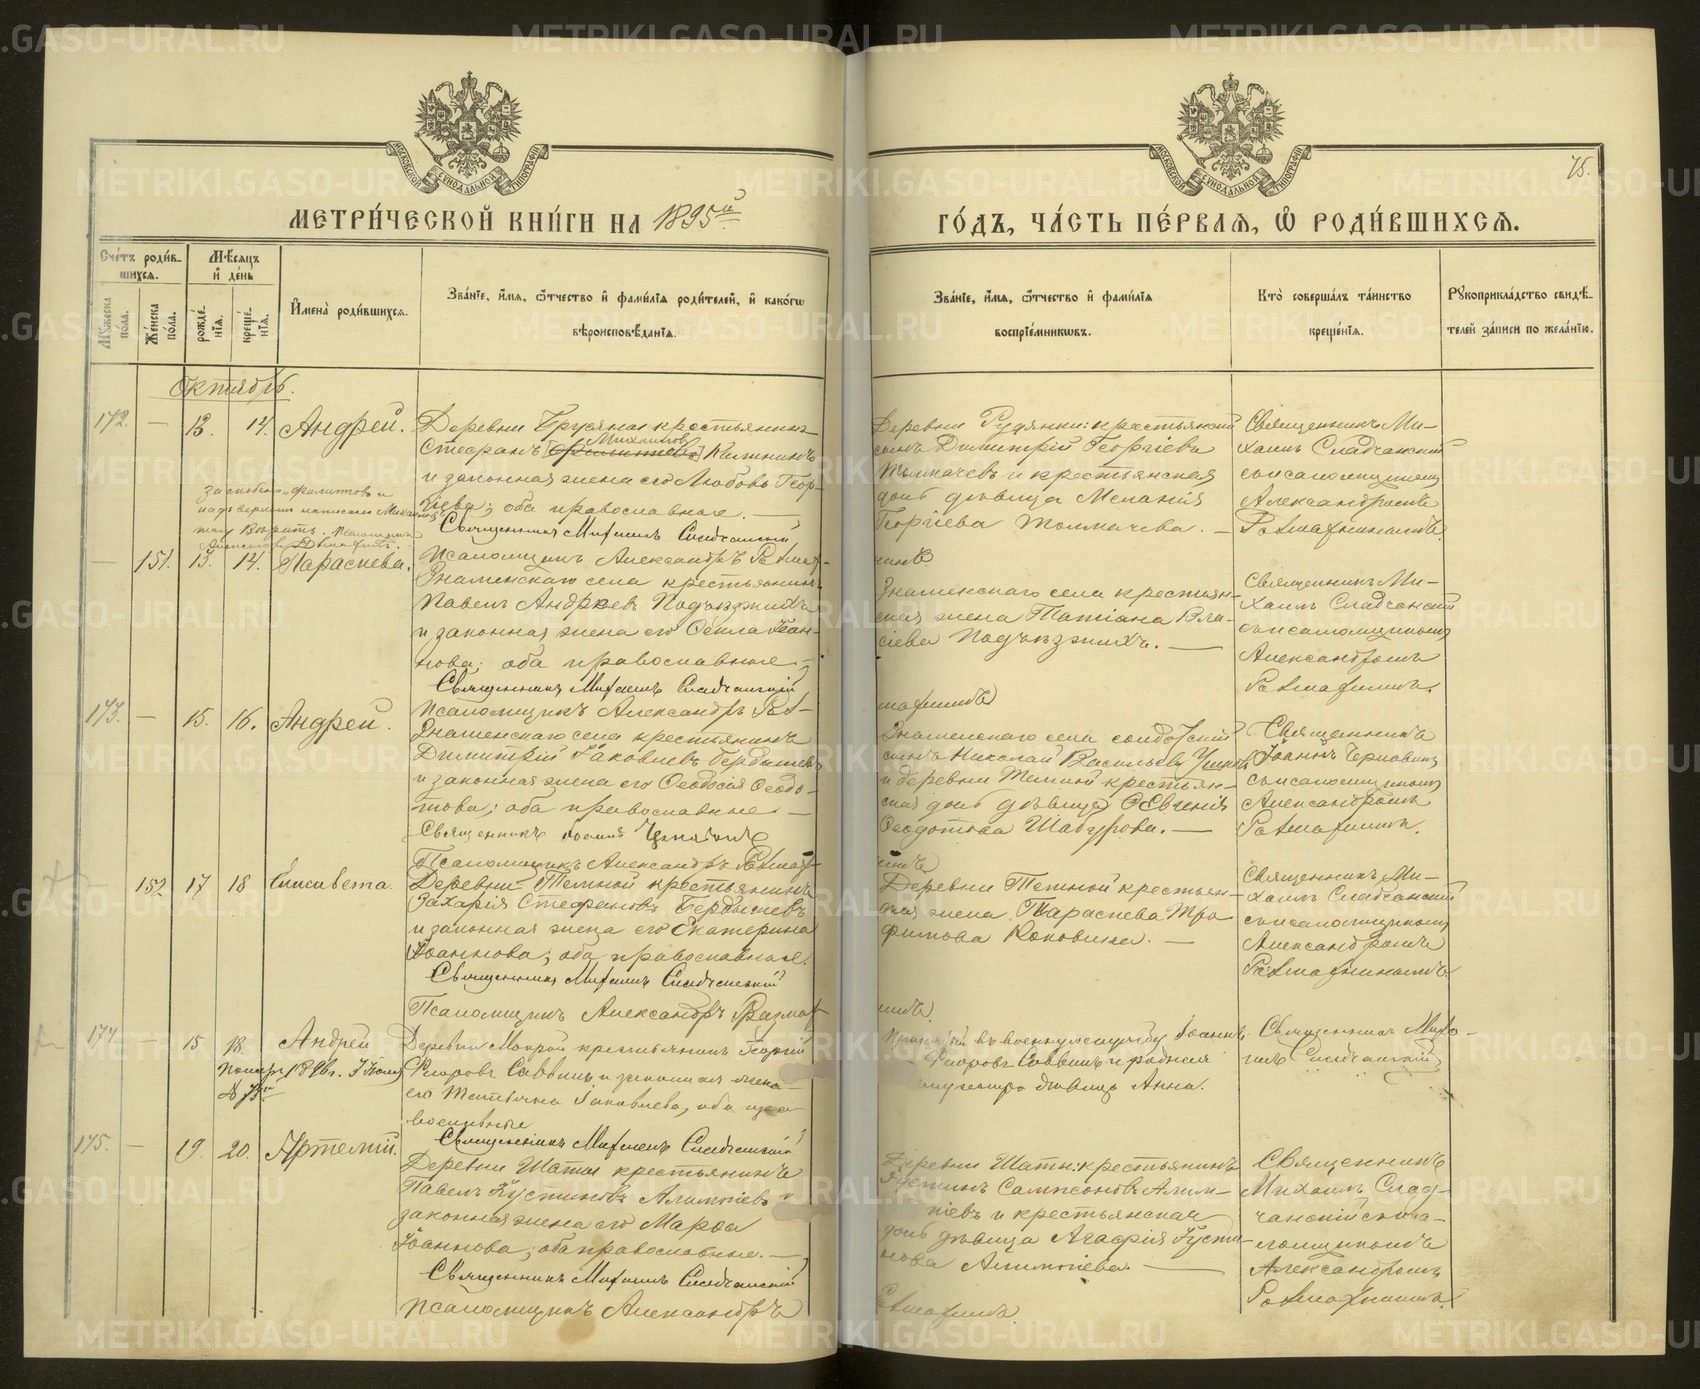 МЕТРИ́ЧЕСКОЙ КНИ́ГИ НА 1895й
ГО́ДЪ, ЧА́СТЬ ПЕ́РВАЯ, Ѡ РОДИ́ВШИХСЯ.
75.
Сче́тъ роди́в-
шихся.
Мѣ́сяцъ
и҆ де́нь
Му́жеска
по́ла.
Же́нска
по́ла.
рожде́-
нїя.
креще́-
нїя.
И҆мена̀ роди́вшихся.
Зва́нїе, и҆́мя, ѻ҆́тчество и҆ фами́лїя роди́телей, и҆ како́гѡ
вѣроисповѣ́данїя.
Зва́нїе, и҆́мя, ѻ҆́тчество и҆ фами́лїя
воспрїе́мниковъ.
Кто̀ соверша́лъ та́инство
креще́нїя.
Рꙋкоприкла́дство свидѣ́-
телей за́писи по жела́нїю.
Октябрь.
172. — 13. 14. Андрей.
Деревни Брусяны крестьянинъ
Стефанъ Михаиловъ Калининъ
и законная жена его Любовь Геор-
гіева; оба православные. —
Священникъ Михаилъ Сладчанскій
Псаломщикъ Александръ
Деревни Рудянки: крестьянскій
сынъ Димитрій Георгіевъ
Толмачевъ и крестьянская
дочь дѣвица Меланія
Георгіева Толмачева. —
Священникъ Ми-
хаилъ Сладчанскій
съ псаломщикомъ
Александромъ
— 151. 13. 14. Параскева.
Знаменскаго села крестьянинъ
Павелъ Андреевъ Подъѣзжихъ
и законная жена его Іоан-
нова; оба православные. —
Священникъ Михаилъ Сладчанскій
Псаломщикъ Александръ
Знаменскаго села крестьян-
ская жена Татіана Вла-
сіева Подъѣзжихъ. —
Священникъ Ми-
хаилъ Сладчанскій
съ псаломщикомъ
Александромъ
173. — 15. 16. Андрей.
Знаменскаго села крестьянинъ
Димитрій Іаковлевъ Бердышевъ
и законная жена его Ѳеодосія Ѳеодо-
това; оба православные. —
Священникъ
Псаломщикъ Александръ
Знаменскаго села солдатскій
сынъ Николай Васильевъ
и деревни Темной крестьян-
ская дочь дѣвица Евгенія
Ѳеодотова Шабурова. —
Священникъ
Іоаннъ
съ псаломщикомъ
Александромъ
— 152 17 18 Елисавета.
Деревни Темной крестьянинъ
Захарія Стефановъ Бердышевъ
и законная жена его Екатерина
Іоаннова; оба православные.
Священникъ Михаилъ Сладчанскій
Псаломщикъ Александръ
Деревни Темной крестьян-
ская жена Параскева Тро
фимова Коковина. —
Священникъ Ми-
хаилъ Сладчанскій
съ псаломщикомъ
Александромъ
174. — 15 18. Андрей
Деревни Мокрой крестьянинъ Георгій
Флоровъ Саввинъ и законная жена
его Татіана Іаковлева, оба пра
вославные
Священникъ Михаилъ Сладчанскій
въ военную службу Іоаннъ
Флоровъ Саввинъ и родная
сестра дѣвица Анна.
Священникъ Миха
илъ Сладчанскій
175. — 19. 20. Артемій.
Деревни Шаты крестьянинъ
Павелъ Іустиновъ Алимпіевъ и
законная жена его Марѳа
Іоаннова; оба православные. —
Священникъ Михаилъ Сладчанскій
Псаломщикъ Александръ
Деревни Шаты: крестьянинъ
Іустинъ Сампсоновъ Алим-
піевъ и крестьянская
дочь дѣвица Агафія Іусти-
нова Алимпіева. —
Священникъ
Михаилъ Слад-
чанскій съ пса-
ломщикомъ
Александромъ
METRIKI.GASO-URAL.RU